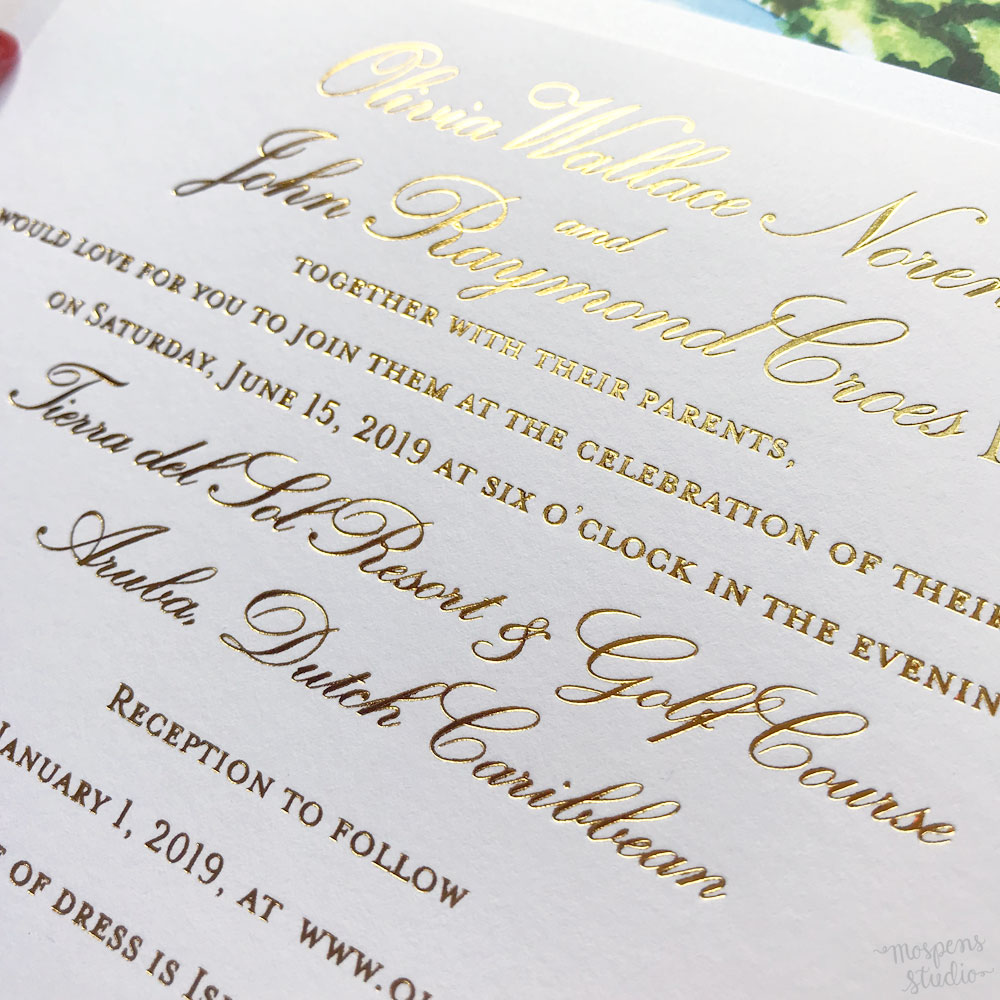 Olivia Wallace
and
John Raymond Croes
TOGETHER WITH THEIR PARENTS,
WOULD LOVE FOR YOU TO JOIN THEM AT THE CELEBRATION OF THEIR
ON SATURDAY, JUNE 15, 2019 AT SIX O'CLOCK IN THE
Tierra del Sol Resort & Golf Course
Aruba, Dutch Caribbean
RECEPTION TO FOLLOW
JANUARY 1, 2019, AT
OF DRESS IS
mospens
studio